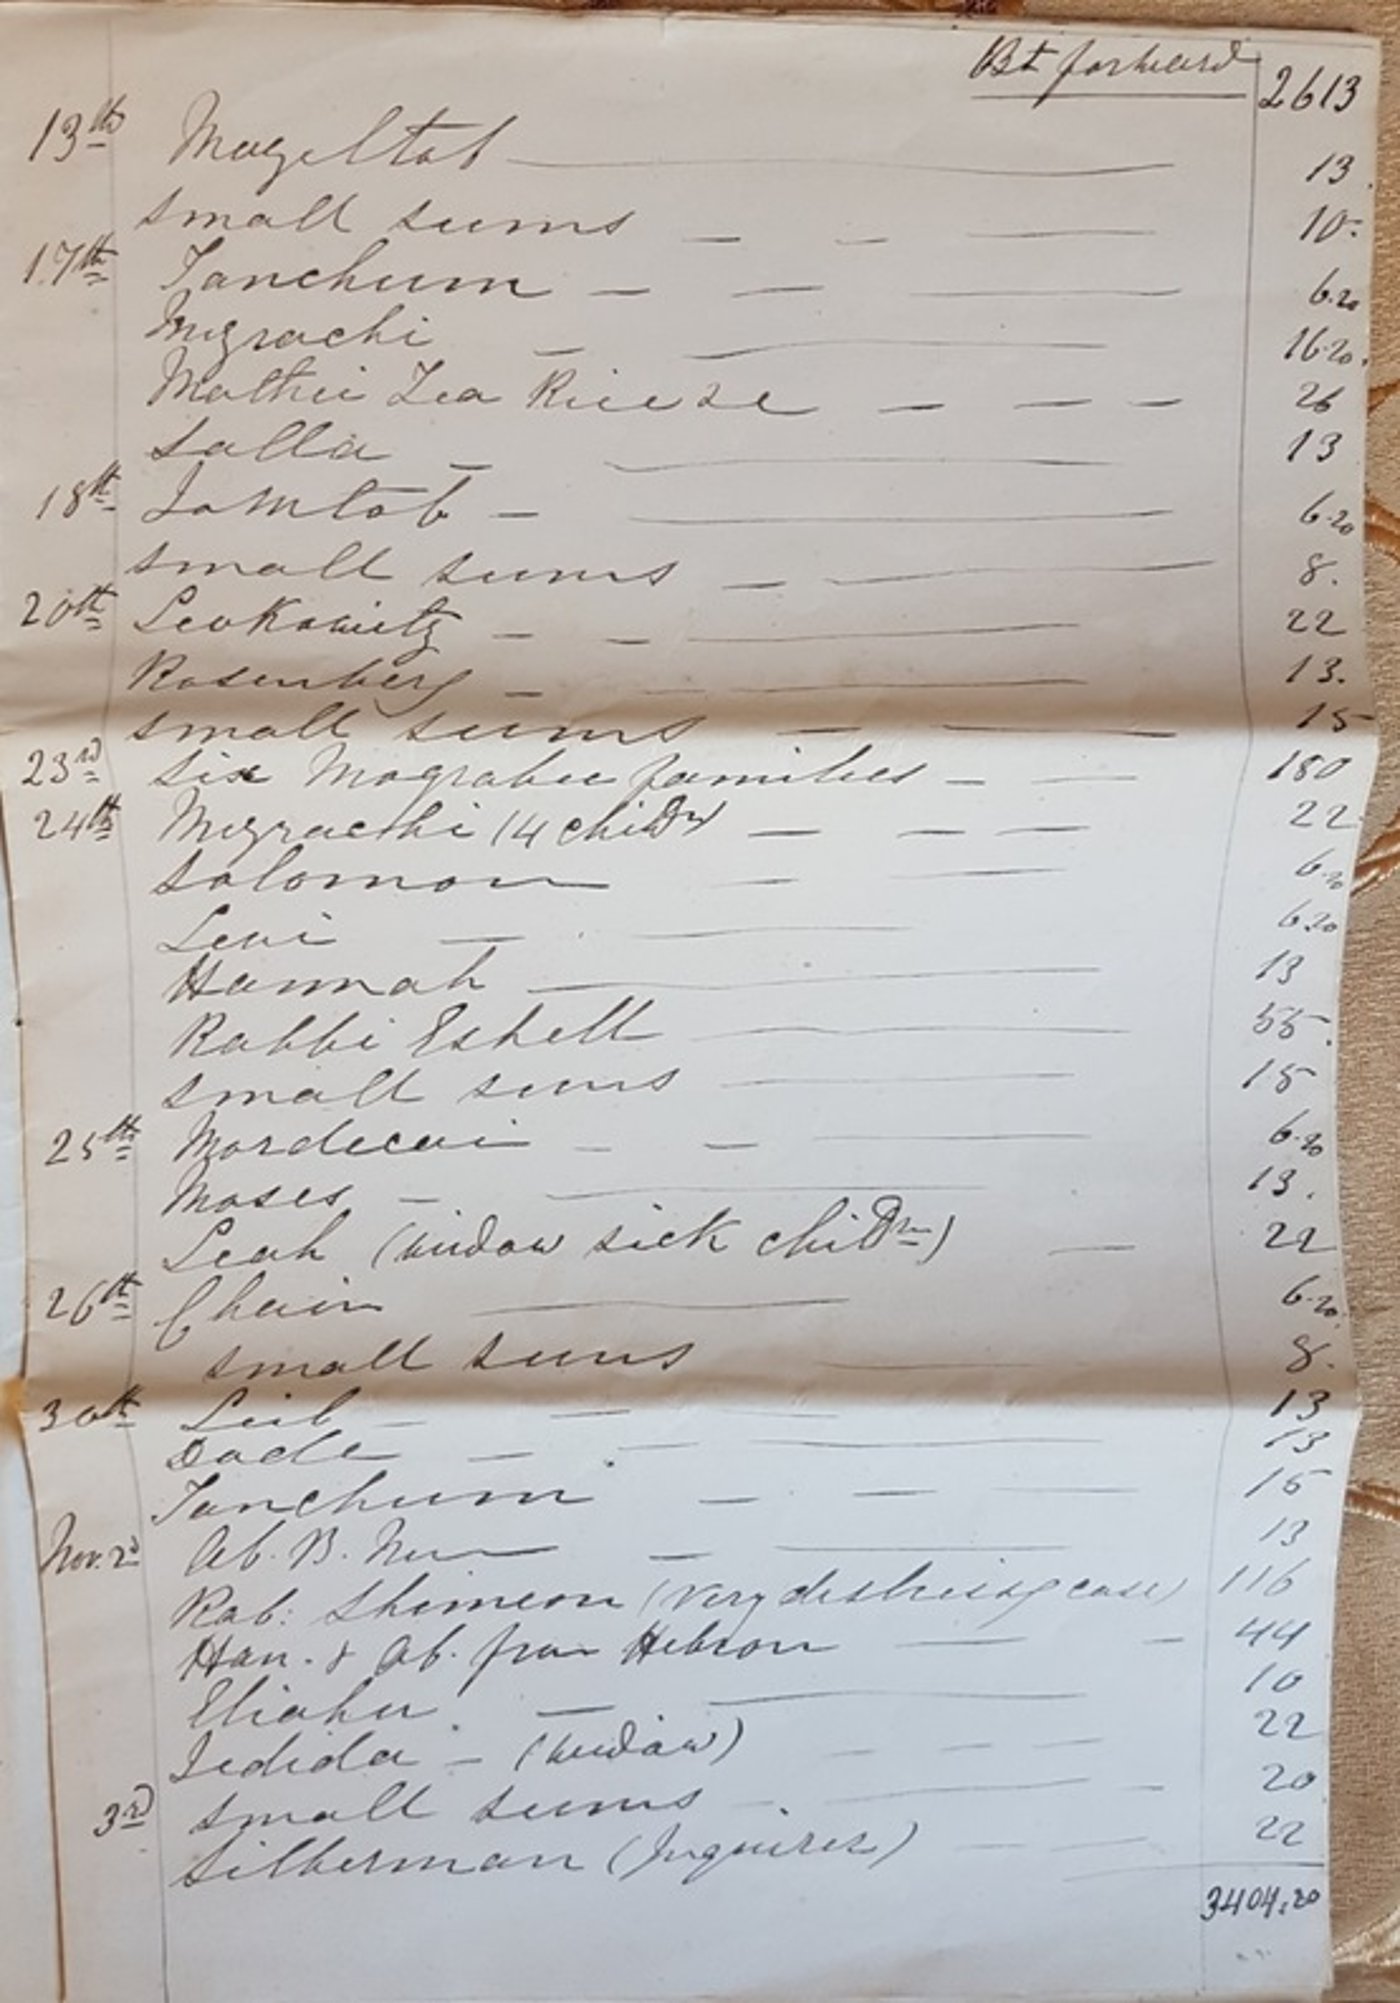 Bt forward 2613
13th Mazeltob 13.
small sums 10.
17th Tanchum 6.20
Mizrachi 16.20.
26
Salla 13
18th Jomtob 6.20
small sums 8.
20th Leokowitz 22
Rosenberg 13.
small sums 15
23rd Six Mograbee families 180
24th Mizrachi (4 childn) 22
Solomon 6.20
Levi 6.20
Hannah 13
Rabbi Eshell 55.
small sums 15
25th Mordecai 6.20
Moses 13.
Leah (widow sick childn) 22
26th Chaim 6.20.
small sums 8.
30th Leib 13
13
Tanchum 15
Nov. 2d Ab. B. 13
Rab: Shimeon (very distressg case) 116
Han. & Ab. from Hebron 44
Eliahu 10
Jedida (widow) 22
3rd small sums 20
Silberman (Inquirer) 22
3404.20